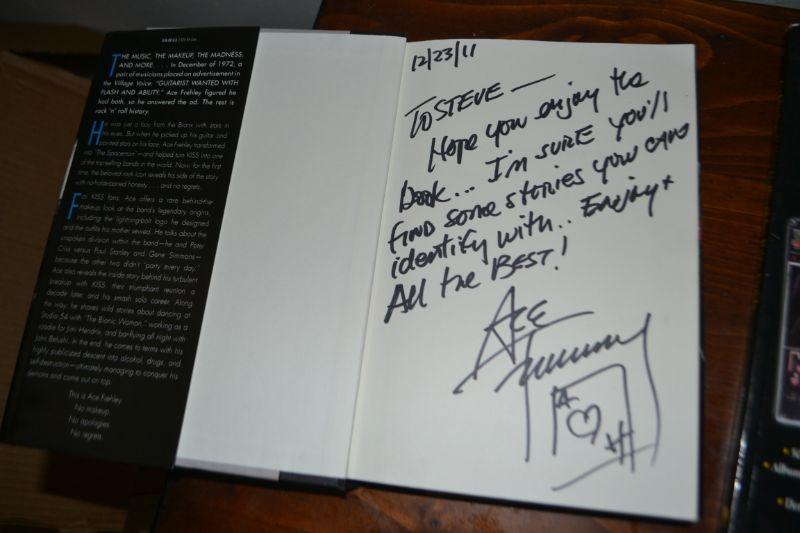 THE MUSIC, THE MAKEUP, THE MADNESS,
AND MORE. . . . In December of 1972, a
pair of musicians placed an advertisement in
the Village Voice: "GUITARIST WANTED WITH
FLASH AND ABILITY." Ace Frehley figured he
had both, so he answered the ad. The rest is
rock 'n' roll history.
He was just a boy from the Bronx with stars in
his eyes. But when he picked up his guitar and
painted stars on his face, Ace Frehley transformed
into "The Spaceman"—and helped turn KISS into one
of the top-selling bands in the world. Now, for the first
time, the beloved rock icon reveals his side of the story
with no-holds-barred honesty . . . and no regrets.
For KISS fans, Ace offers a rare behind-the-
makeup look at the band's legendary origins,
including the lightning-bolt logo he designed
and the outfits his mother sewed. He talks about the
unspoken division within the band—he and Peter
Criss versus Paul Stanley and Gene Simmons—
because the other two didn't "party every day."
Ace also reveals the inside story behind his turbulent
breakup with KISS, their triumphant reunion a
decade later, and his smash solo career. Along
the way, he shares wild stories about dancing at
Studio 54 with "The Bionic Woman," working as a
roadie for Jimi Hendrix, and bar-flying all night with
John Belushi. In the end, he comes to terms with his
highly publicized descent into alcohol, drugs, and
self-destruction—ultimately managing to conquer his
demons and come out on top.
This is Ace Frehley.
No makeup.
No apologies.
No regrets.
12/23/11
TO STEVE —
Hope you enjoy the
book... I'm SURE you'll
FIND some stories you can
identify with.. Enjoy +
All the BEST!
ACE
A
A